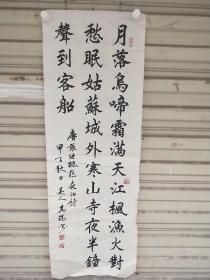 月落烏啼霜滿天江楓漁火對
愁眠姑蘇城外寒山寺夜半鐘
聲到客船
唐張繼楓橋夜泊詩